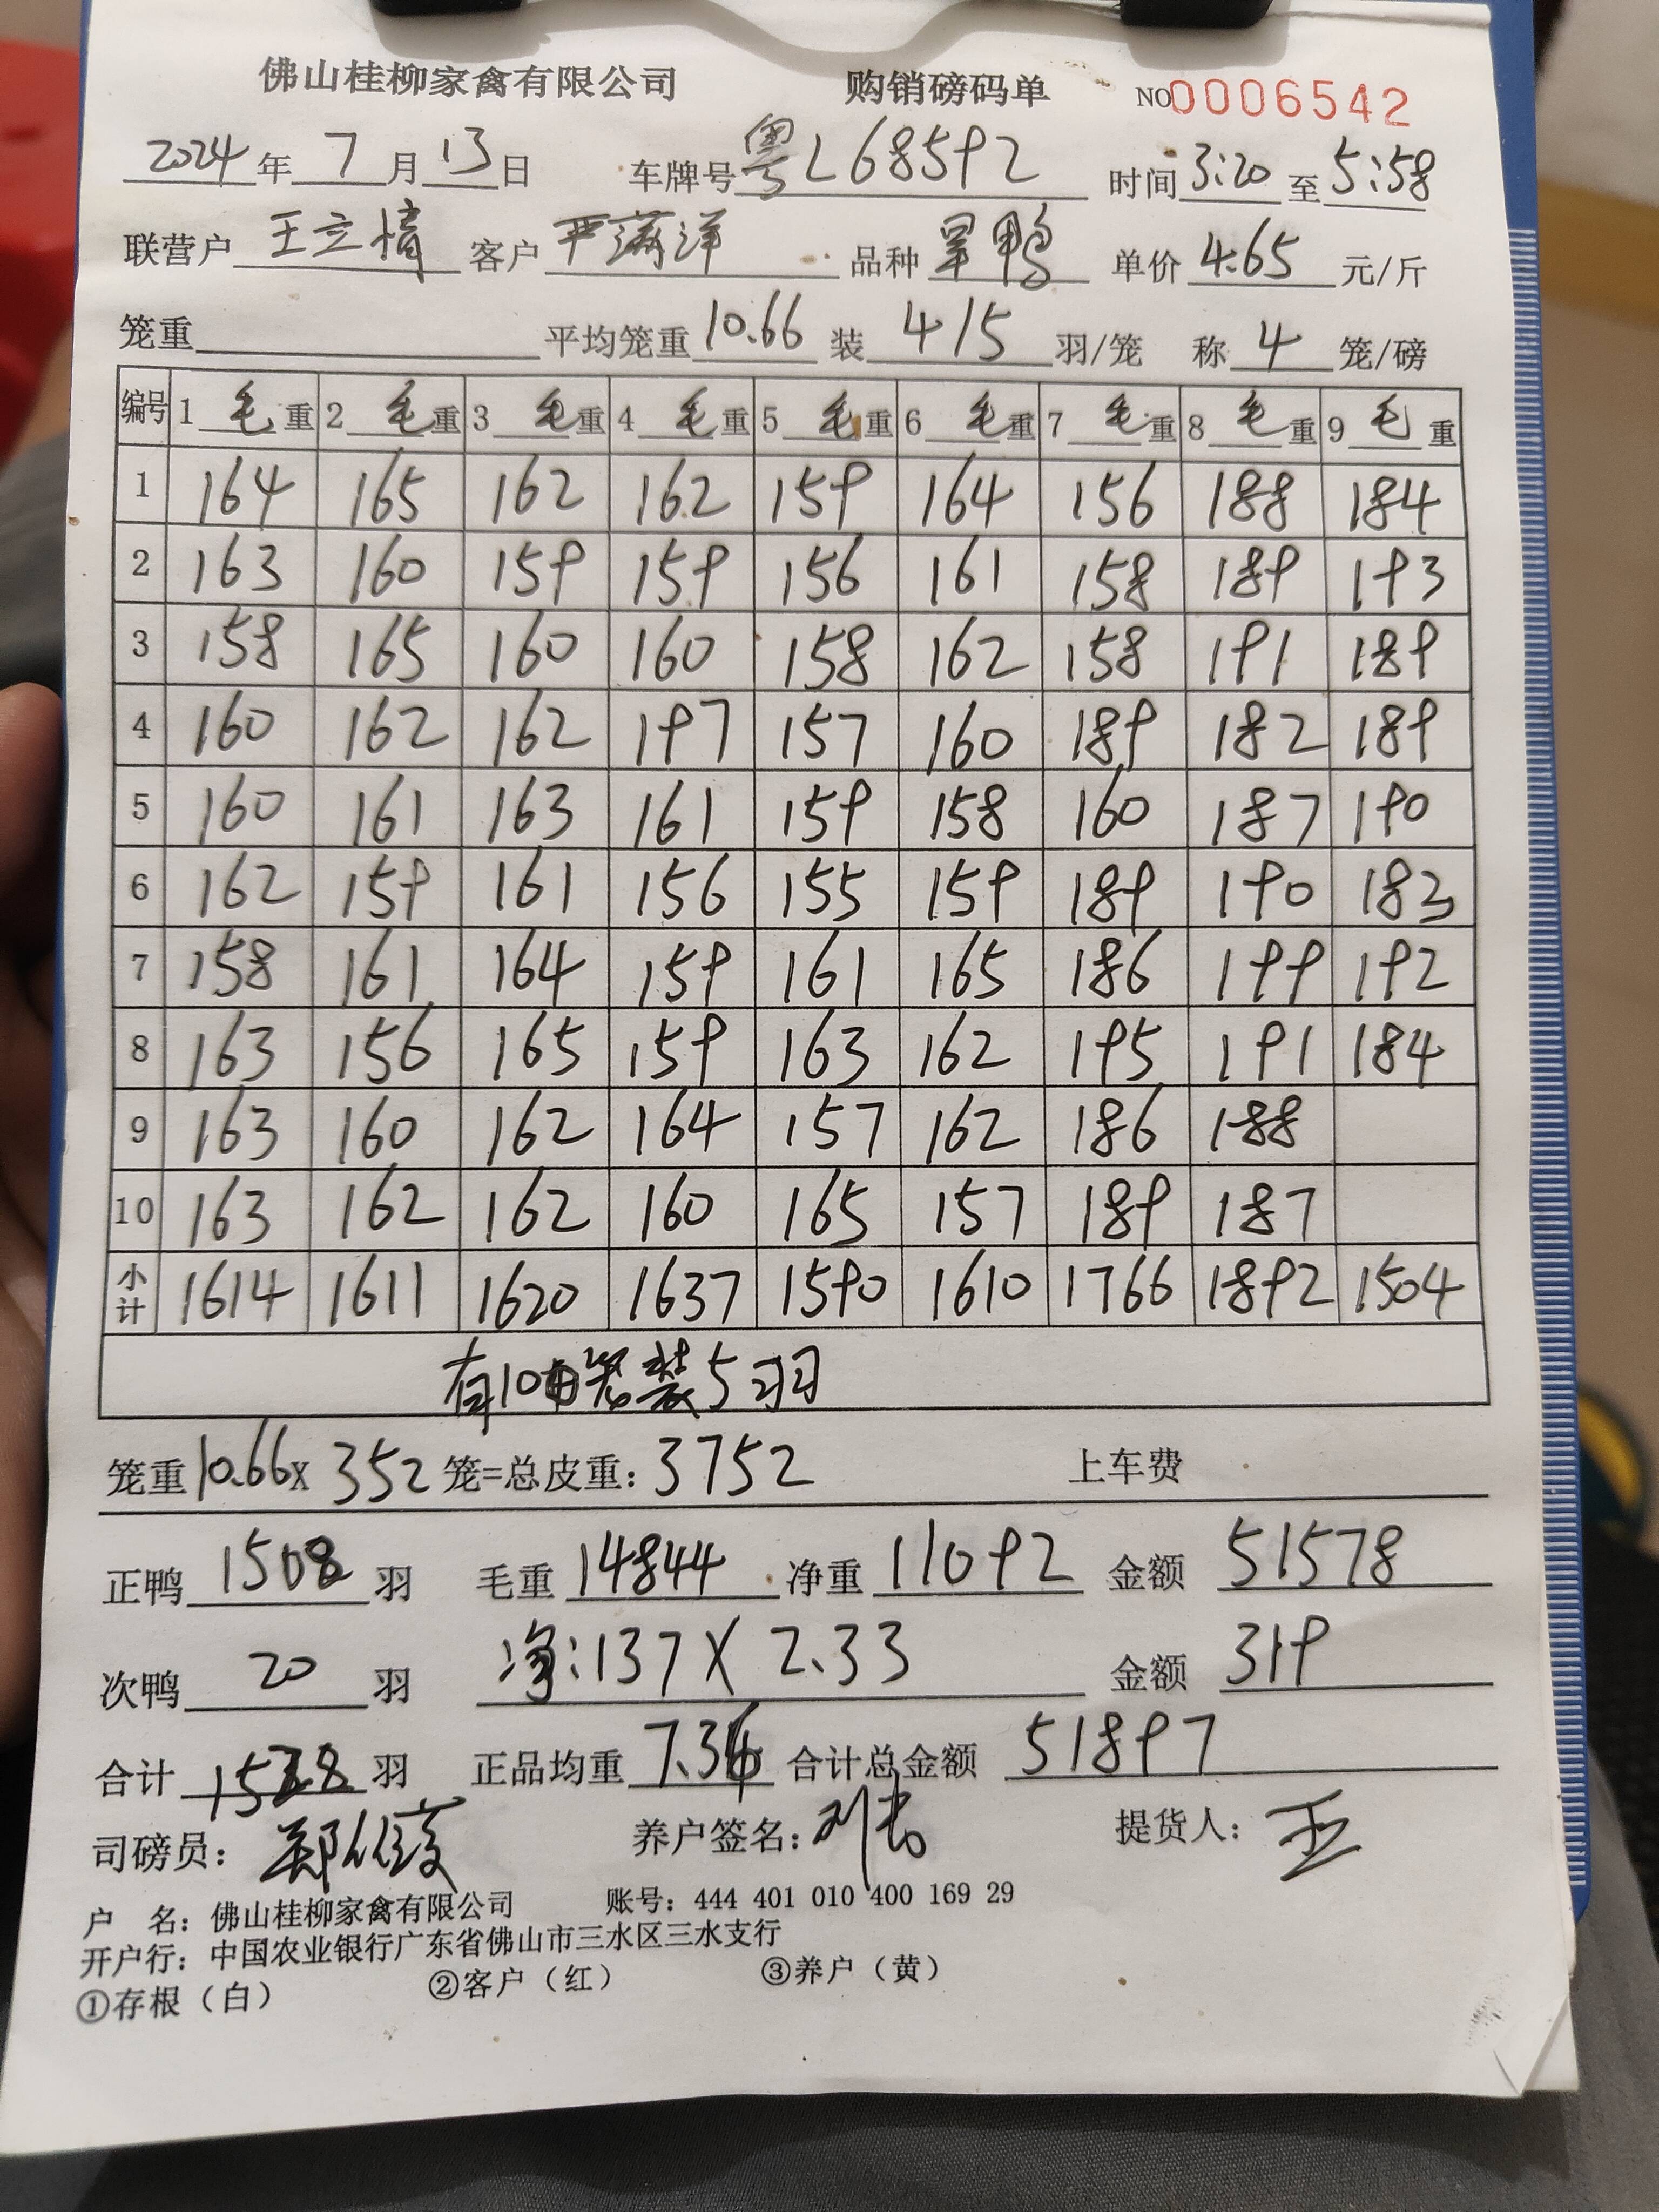 佛山桂柳家禽有限公司 购销磅码单 NO 0006542
2024年 7月 13日 车牌号 粤L68592 时间 3:20 至 5:58
联营户 王立情 客户 严满洋 品种 旱鸭 单价 4.65 元/斤
笼重 平均笼重 10.66 装 4/5 羽/笼 称 4 笼/磅
编号 1 毛重 2 毛重 3 毛重 4 毛重 5 毛重 6 毛重 7 毛重 8 毛重 9 毛重
1 164 165 162 162 159 164 156 188 184
2 163 160 159 159 156 161 158 189 193
3 158 165 160 160 158 162 158 191 189
4 160 162 162 197 157 160 189 182 189
5 160 161 163 161 159 158 160 187 190
6 162 159 161 156 155 159 189 190 183
7 158 161 164 159 161 165 186 199 192
8 163 156 165 159 163 162 195 191 184
9 163 160 162 164 157 162 186 188
10 163 162 162 160 165 157 189 187
小计 1614 1611 1620 1637 1590 1610 1766 1892 1504
笼装5羽
笼重 10.66 X 352 笼=总皮重: 3752 上车费
正鸭 1508 羽 毛重 14844 净重 11092 金额 51578
次鸭 20 羽 净:137 X 2.33 金额 319
合计 1528 羽 正品均重 7.36 合计总金额 51897
司磅员: 养户签名: 提货人: 王
户 名: 佛山桂柳家禽有限公司 账号: 444 401 010 400 169 29
开户行: 中国农业银行广东省佛山市三水区三水支行
①存根（白） ②客户（红） ③养户（黄）